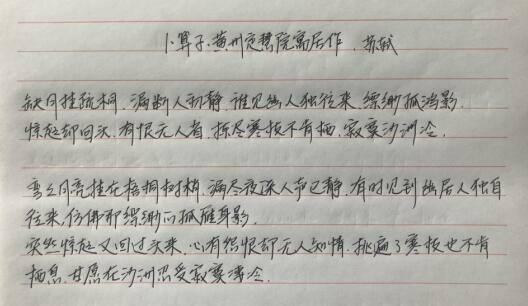 卜算子·黄州定慧院寓居作 苏轼
缺月挂疏桐,漏断人初静.谁见幽人独往来,缥缈孤鸿影.
惊起却回头,有恨无人省.拣尽寒枝不肯栖,寂寞沙洲冷.
弯弯月亮挂在梧桐树梢,漏尽夜深人声已静.有时见到幽居人独自
往来,仿佛那缥缈的孤雁身影.
突然惊起又回过头来,心有怨恨却无人知情.挑遍了寒枝也不肯
栖息,甘愿在沙洲忍受寂寞凄冷.